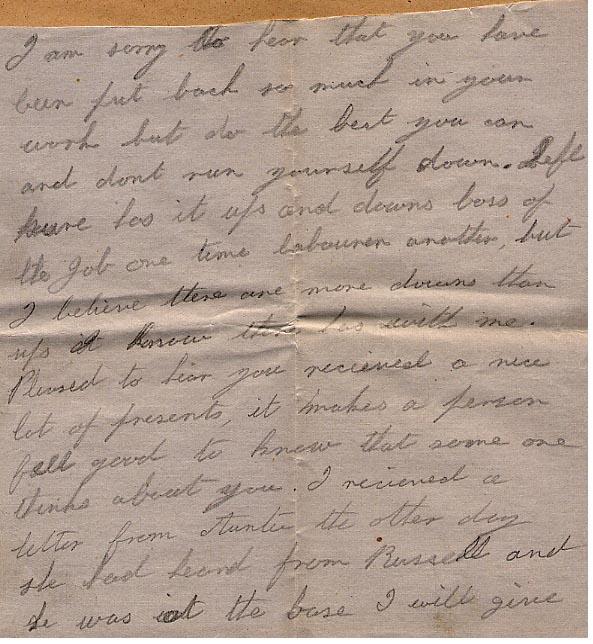 I am sorry to hear that you have
been put back so much in your
work but do the best you can
and dont run yourself down. Life
sure has it ups and downs boss of
the Job one time labourer another, but
I believe there are more downs than
ups I know there has with me.
Pleased to hear you recieved a nice
lot of presents, it makes a person
feel good to know that some one
thinks about you. I recieved a
letter from Auntie the other day
she had heard from Russell and
he was at the base I will give